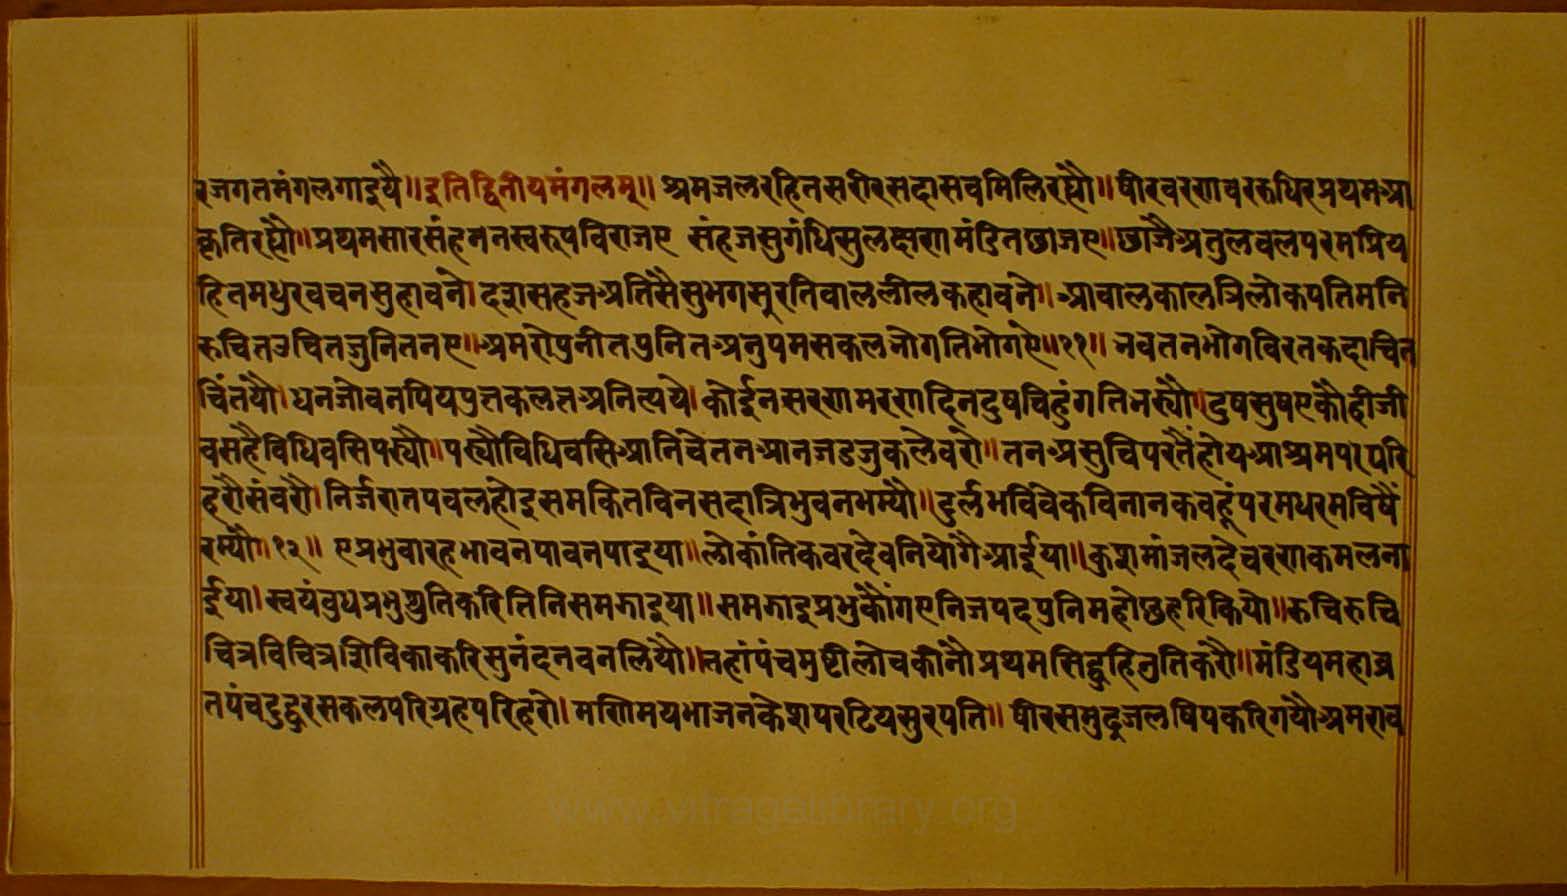 रजगतमंगलगाइयै॥इतिद्वितीयमंगलम्॥ श्रमजलरहितसरीरसदासबमिलिरह्यौ॥षीरवरणवररुधिरप्रथमआ
कृतिरह्यौ॥प्रथमसारसंहननस्वरूपविराजए संहजसुगंधिसुलक्षणमंडितछाजए॥छाजैअतुलबलपरमप्रिय
हितमधुरवचनसुहावने।दशसहजअतिसैसुभगमूरतिबाललीलकहावने॥आबालकालत्रिलोकपतिमनि
रुचितउचितजुनितनए॥अमरोपुनीतपुनितअनुपमसकलभोगतिभोगऐ॥११॥ भवतनभोगविरतकदाचित
चिंतंयौ।धनजोवनपियपुत्तकलत्तअनित्यये।कोईनसरणमरणदिनदुषचिहुंगतिभर्‍यौ॥दुषसुषएकौहीजी
वसहैविधिवसिपर्‍यौ॥पर्‍यौविधिवसिआनिचेतनआनजडजुकलेवरो॥तनअसुचिपरतैंहोयआश्रमपरपरि
हरौसंवरौ।निर्जरातपबलहोइसमकितविनसदात्रिभुवनभम्यौ॥दुर्लभविवेकविनानकबहूंपरमधरमविषैं
रम्यौ॥१२॥ एप्रभुबारहभावनपावनपाइया॥लोकांतिकवरदेवनियोगैआईया॥कुशमांजलदेचरणकमलना
ईया।स्वयंबुधप्रभुथुतिकरितिनिसमझाइया॥समझाइप्रभुकौंगएनिजपदपुनिमहोछहरिकियो॥रुचिरुचि
चित्रविचित्रशिविकाकरिसुनंदनवनलियौ॥तहांपंचमुष्टीलोचकीनौप्रथमसिद्धुहिनुतिकरौ॥मंडियमहाव्र
तपंचदुद्धुरसकलपरिग्रहपरिहरो।मणिमयभाजनकेशपरटियसुरपति॥ षीरसमुद्रजलषिपकरिगयौअमराव
www.vitragelibrary.org